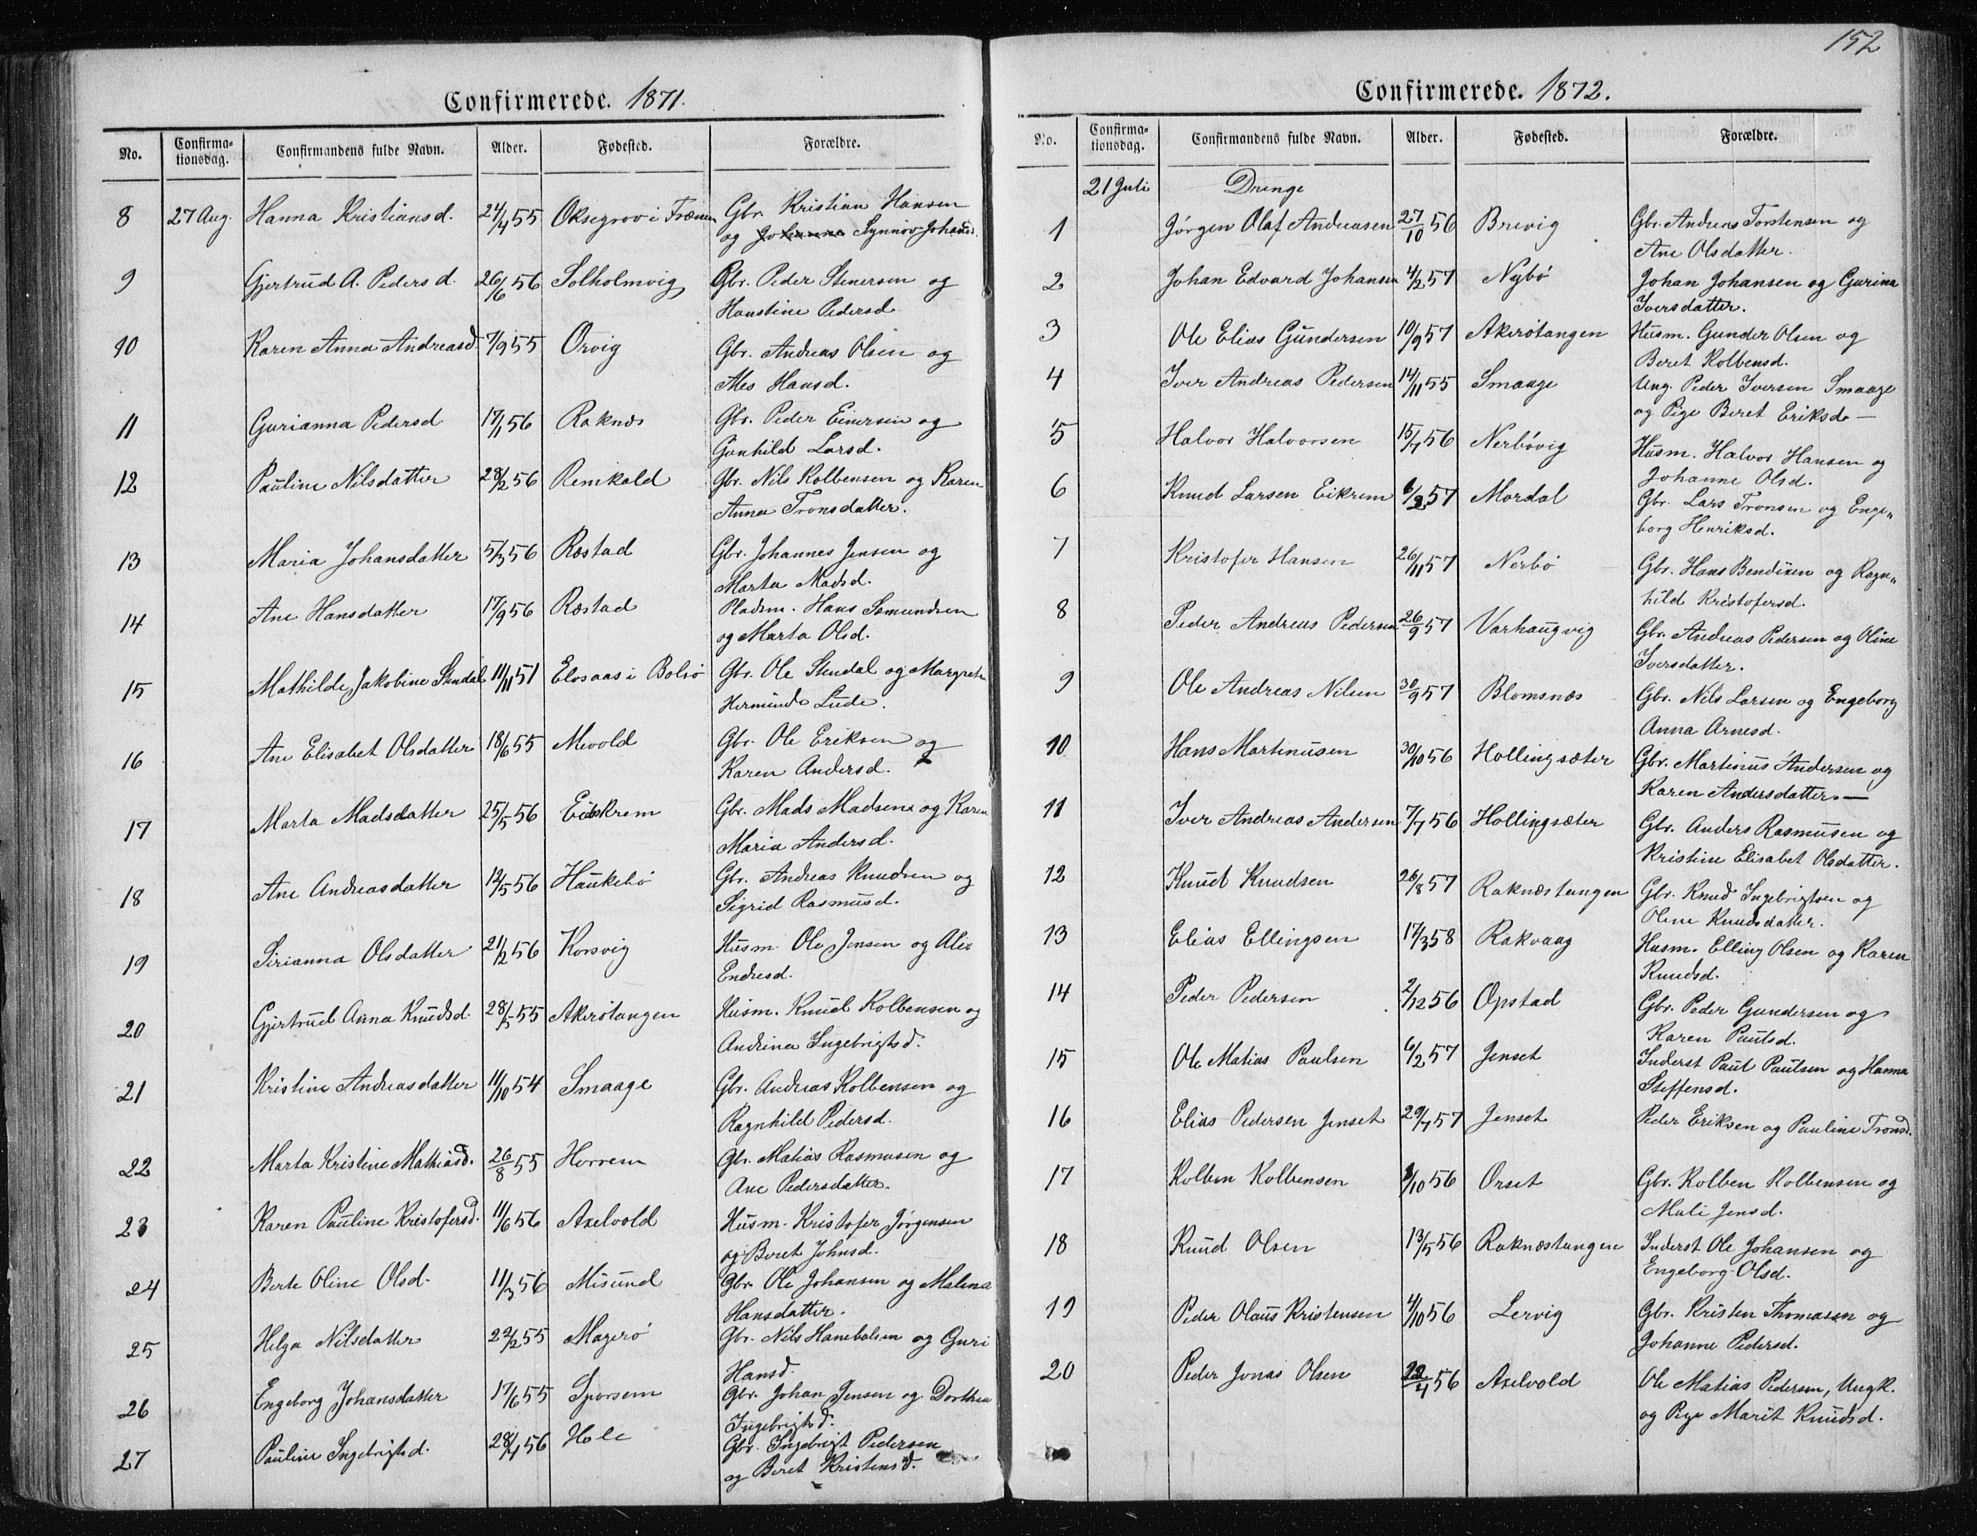 152
Confirmerede. 1871.
No. Confirma-tionsdag. Confirmandens fulde Navn. Alder. Fødested. Forældre.
8 27 Aug. Hanna Kristiansd. 24/4 55 Oksegrov i Frænen Gbr. Kristian Hansen
og Johanna Synnöv Johansd.
9 Gjertrud A. Pedersd. 26/6 56 Solholmvig Gbr. Peder Stenersen og
Haustine Pedersd.
10 Karen Anna Andreasd. 7/9 55 Orvig Gbr. Andreas Olsen og
Mes Hansd.
11 Gurianna Pedersd 17/1 56 Raknæs Gbr. Peder Einersen og
Gunhild Larsd.
12 Pauline Nilsdatter 28/2 56 Remkald Gbr. Nils Kolbensen og Karen
Anna Tronsdatter.
13 Maria Johansdatter 5/3 56 Ræstad Gbr. Johannes Jensen og
Marta Madsd.
14 Ane Hansdatter 17/9 56 Ræstad Pladsm. Hans Semundsen
og Marta Olsd.
15 Mathilde Jakobine Stendal 11/11 51 Elosaas i Bolsö Gbr. Ole Stendal og Margrete
Herminde Lude.
16 Ane Elisabet Olsdatter 18/6 55 Mevold Gbr. Ole Eriksen og
Karen Andersd.
17 Marta Madsdatter 25/5 56 Eidskrem Gbr. Mads Madsen og Karen
Maria Andersd.
18 Ane Andreasdatter 12/5 56 Haukebö Gbr. Andreas Knudsen og
Sigrid Rasmusd.
19 Sirianna Olsdatter 21/2 56 Korsvig Husm. Ole Jensen og Alis
Endresd.
20 Gjertrud Anna Knudsd. 28/5 55 Akerötangen Husm. Knud Kolbensen og
Andrina Ingebrigtsd.
21 Kristine Andreasdatter 11/10 54 Smaage Gbr. Andreas Kolbensen og
Ragnhild Pedersd.
22 Marta Kristine Mathiasd. 26/8 55 Horrem Gbr. Matias Rasmusen og
Ane Pedersdatter.
23 Karen Pauline Kristofersd. 11/6 56 Axelvold Husm. Kristofer Jörgensen
og Beret Johnsd.
24 Berte Oline Olsd. 11/3 56 Misund Gbr. Ole Johansen og Malena
Hansdatter.
25 Helga Nilsdatter 22/2 55 Magerö Gbr. Nils Hanebalsen og Guri
Hansd.
26 Engeborg Johansdatter 17/6 55 Sporsem Gbr. Johan Jensen og Dorthea
Ingebrigtsd.
27 Pauline Ingebrigtsd. 28/1 56 Hole Gbr. Ingebrigt Pedersen
og Beret Kristensd.
Confirmerede. 1872.
No. Confirma-tionsdag. Confirmandens fulde Navn. Alder. Fødested. Forældre.
21 Juli Drenge
1 Jörgen Olaf Andreasen 27/10 56 Brevig Gbr. Andreas Torstensen og
Ane Olsdatter.
2 Johan Edvard Johansen 4/2 57 Nybö Johan Johansen og Gurina
Iversdatter.
3 Ole Elias Gundersen 10/9 57 Akerötangen Husm. Gunder Olsen og
Beret Kolbensd.
4 Iver Andreas Pedersen 14/11 55 Smaage Ung. Peder Iversen Smaage
og Pige Beret Eriksd. —
5 Halvor Halvorsen 15/7 56 Nerbövig Husm. Halvor Hansen og
Johanne Olsd.
6 Knud Larsen Eikrem 6/2 57 Mordal Gbr. Lars Tronsen og Enge„
borg Henriksd.
7 Kristofer Hansen 26/11 57 Nerbö Gbr. Hans Bendixen og Ragn„
hild Kristofersd.
8 Peder Andreas Pedersen 26/9 57 Varhaugvig Gbr. Andreas Pedersen og Oline
Iversdatter.
9 Ole Andreas Nilsen 30/9 57 Blomsnæs Gbr. Nils Larsen og Engeborg
Anna Arnesd.
10 Hans Martinusen 30/10 56 Hollingsæter Gbr. Martinus Andersen og
Karen Andersdatter. —
11 Iver Andreas Andersen 7/7 56 Hollingsæter Gbr. Anders Rasmusen og
Kristine Elisabet Olsdatter.
12 Knud Knudsen 26/8 57 Raknæstangen Gbr. Knud Ingebrigtsen og
Oline Knudsdatter.
13 Elias Ellingsen 17/3 58 Rakvaag Husm. Elling Olsen og Karen
Knudsd.
14 Peder Pedersen 2/12 56 Opstad Gbr. Peder Gundersen og
Karen Paulsd.
15 Ole Matias Paulsen 6/2 57 Jenset Inderst Paul Paulsen og Hanna
Steffensd.
16 Elias Pedersen Jenset 29/7 57 Jenset Peder Eriksen og Pauline Tronsd.
17 Kolben Kolbensen /10 56 Orset Gbr. Kolben Kolbensen og
Mali Jensd.
18 Knud Olsen 13/5 56 Raknæstangen Inderst Ole Johansen og
Engeborg Olsd.
19 Peder Olaus Kristensen 4/10 56 Lervig Gbr. Kristen Thomasen og
Johanne Pedersd.
20 Peder Jonas Olsen 22/4 56 Axelvold Ole Matias Pedersen, Ungk.
og Pige Marit Knudsd.